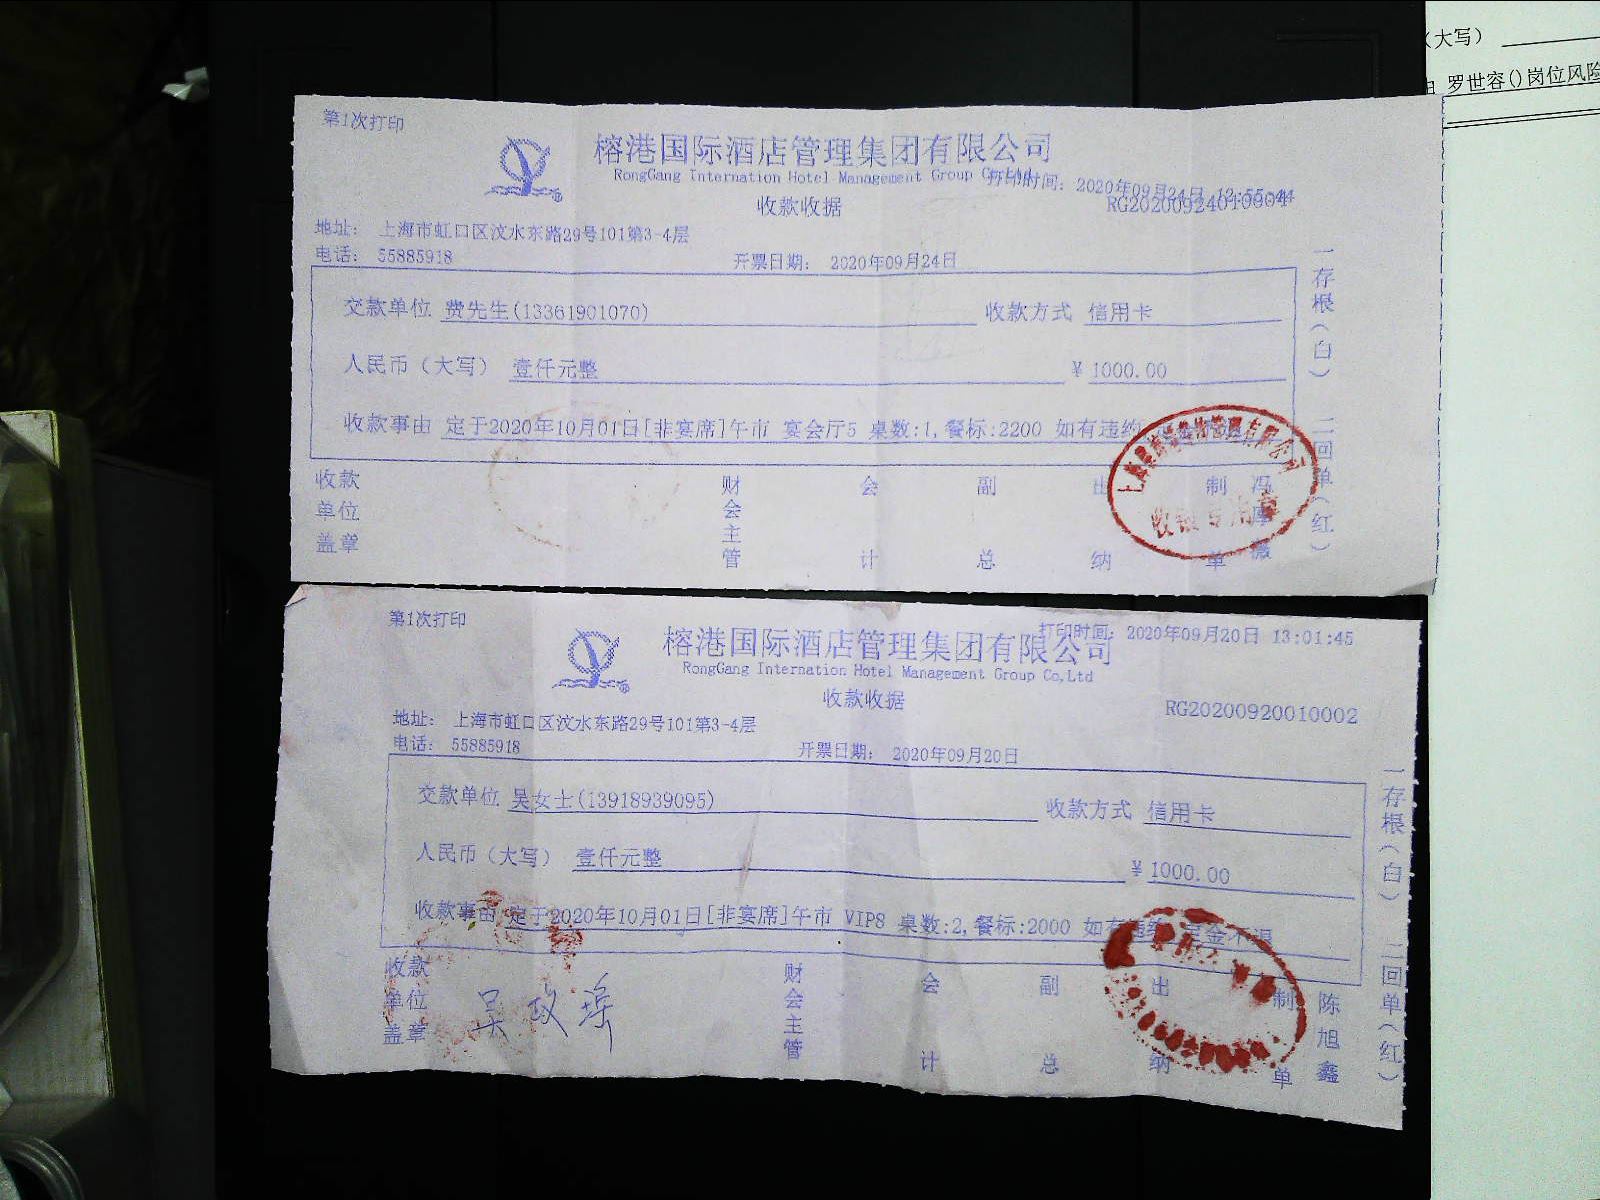 (大写)
罗世容()岗位风险
第1次打印
榕港国际酒店管理集团有限公司
RongGang Internation Hotel Management Group Co,Ltd
打印时间: 2020年09月24日 12:55:44
收款收据
地址: 上海市虹口区汶水东路29号101第3-4层
电话: 55885918
开票日期: 2020年09月24日
交款单位 费先生(13361901070) 收款方式 信用卡
人民币(大写) 壹仟元整 ¥ 1000.00
收款事由 定于2020年10月01日[非宴席]午市 宴会厅5 桌数:1,餐标:2200 如有违约
收款单位盖章 财会主管 会计 副总 出纳 制单
收银专用章
一存根(白) 二回单(红)
第1次打印
榕港国际酒店管理集团有限公司
打印时间: 2020年09月20日 13:01:45
RongGang Internation Hotel Management Group Co,Ltd
收款收据
RG20200920010002
地址: 上海市虹口区汶水东路29号101第3-4层
电话: 55885918
开票日期: 2020年09月20日
交款单位 吴女士(13918939095) 收款方式 信用卡
人民币(大写) 壹仟元整 ¥ 1000.00
收款事由 定于2020年10月01日[非宴席]午市 VIP8 桌数:2,餐标:2000 如有违约 定金不退
收款单位盖章 财会主管 会计 副总 出纳 制单 陈旭鑫
一存根(白) 二回单(红)